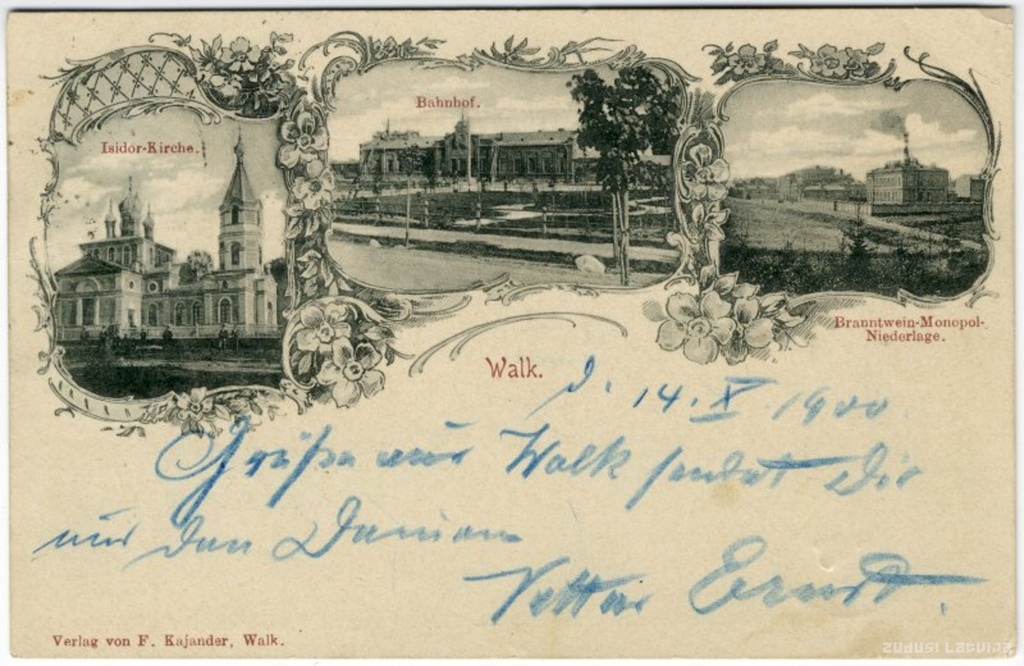 Isidor-Kirche.
Bahnhof.
Branntwein-Monopol-
Niederlage.
Walk.
d. 14. X 1900
Grüße aus Walk sendet Dir
und den Deinen
Vetter Ernst.
Verlag von F. Kajander, Walk.
zudusi Latvija